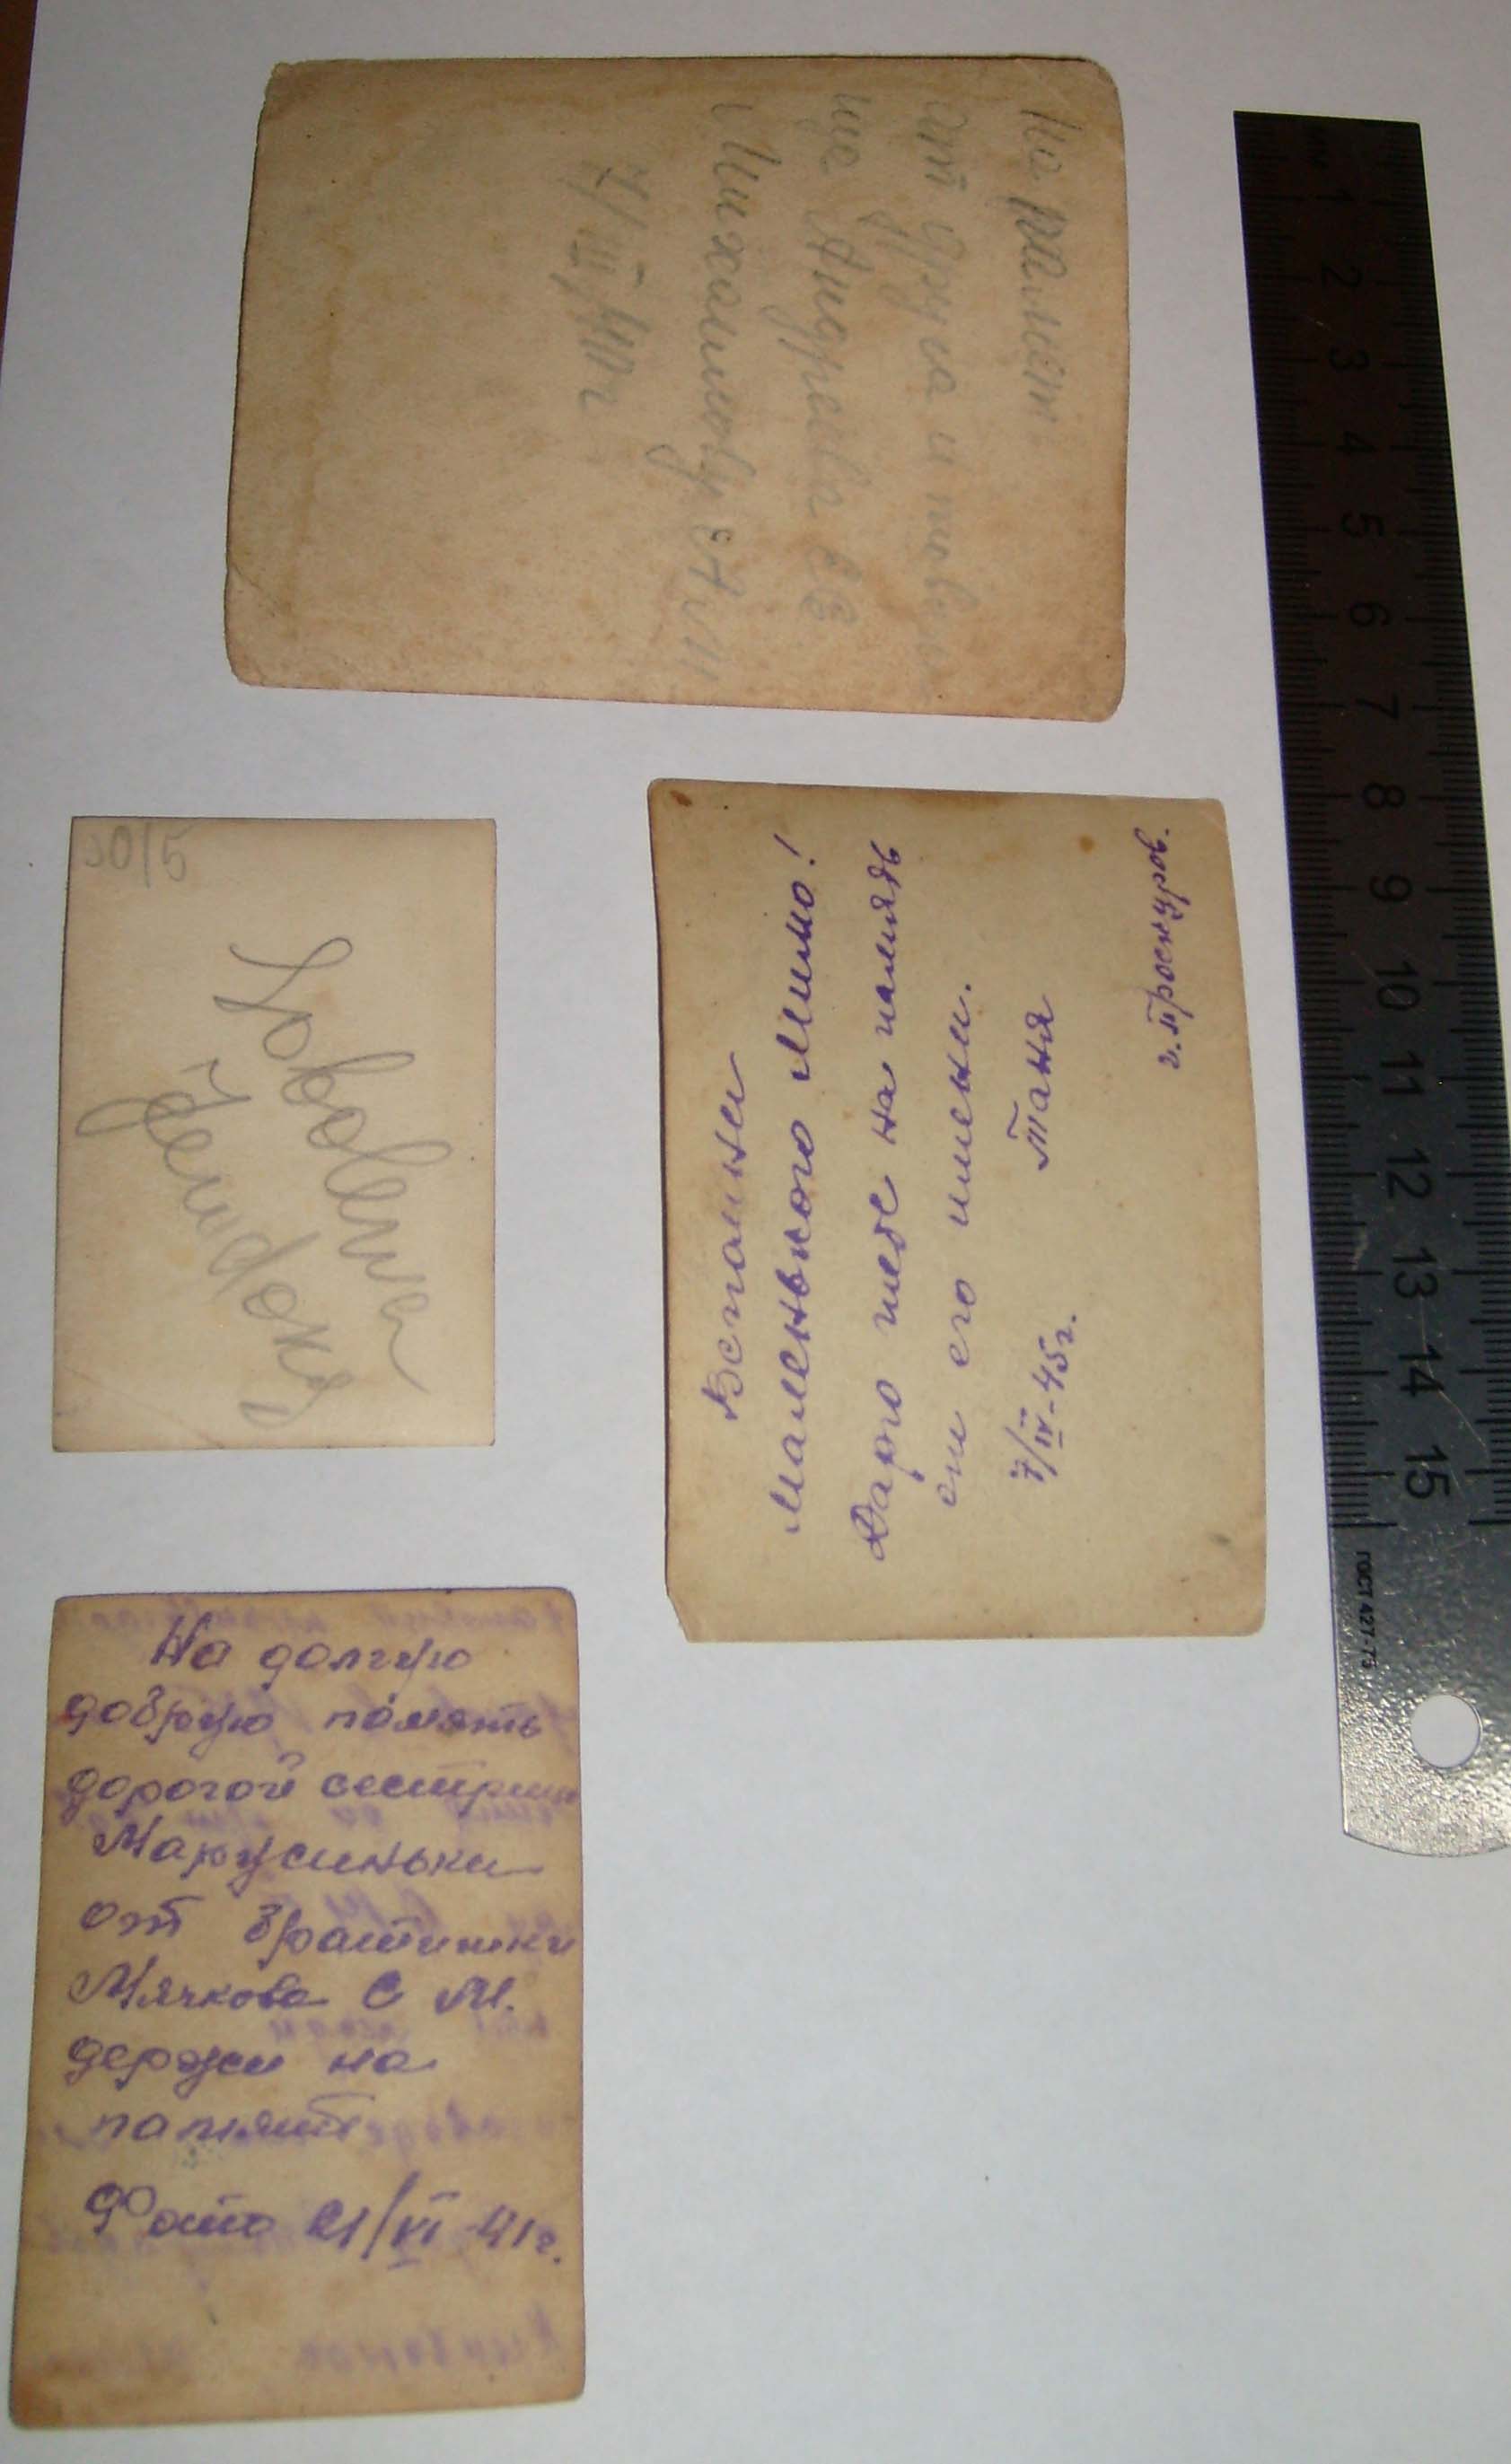 На памет
от друга и товари
ща Андреева С.Е.
Михайлову А.И.
7/III 41 г
Вспомни
маленького Мимо!
Дарю тебе на память
от его имени.
7/IV-45г. Таня
г. Проскуров.
20/5
На долгую
добрую память
дорогой сестрице
Марусиньки
от братишки
Мячкова С М.
держи на
память
Фото 21/VI-41г.
1
2
3
4
5
6
7
8
9
10
11
12
13
14
15
ГОСТ 427-75